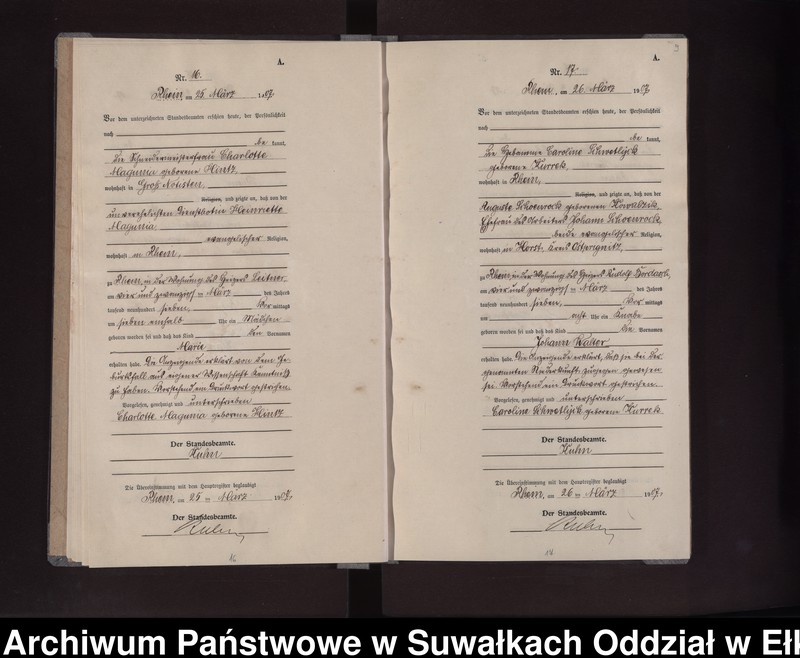 A.
Nr. 16.
Rhein, am 25. März 1907.
Vor dem unterzeichneten Standesbeamten erschien heute, der Persönlichkeit
nach
be kannt,
die Schneidermeisterfrau Charlotte
Magunia geborene Hintz,
wohnhaft in Groß Notisten,
Religion, und zeigte an, daß von der
unverehelichten Dienstbotin Henriette
Magunia
evangelischer Religion,
wohnhaft in Rhein,
zu Rhein, in der Wohnung des
am vier und zwanzigsten März des Jahres
tausend neunhundert sieben, Vor mittags
um sieben einhalb Uhr ein Mädchen
geboren worden sei und daß das Kind den Vornamen
Marie
erhalten habe. Die Anzeigende erklärt von dem Ge-
burtsfall aus eigener Wissenschaft Kenntniß
zu haben. Vorstehend ein Druckwort gestrichen.
Vorgelesen, genehmigt und unterschrieben
Charlotte Magunia geborene Hintz
Der Standesbeamte.
Kuhn
Die Übereinstimmung mit dem Hauptregister beglaubigt
Rhein, am 25ten März 1907.
Der Standesbeamte.
Kuhn
16
9
A.
Nr. 17.
Rhein, am 26. März 1907.
Vor dem unterzeichneten Standesbeamten erschien heute, der Persönlichkeit
nach
be kannt,
die Hebamme Caroline
geborene Kurrek,
wohnhaft in Rhein,
Religion, und zeigte an, daß von der
Auguste Schoenrock geborenen Kowalzik,
Ehefrau des Arbeiters Johann Schoenrock
beide evangelischer Religion,
wohnhaft in Horst, Kreis Ostprignitz,
zu Rhein, in der Wohnung des Rudolf
am vier und zwanzigsten März des Jahres
tausend neunhundert sieben, Vor mittags
um acht Uhr ein Knabe
geboren worden sei und daß das Kind die Vornamen
Johann Walter
erhalten habe. Die Anzeigende erklärt, daß sie bei der
genannten Niederkunft zugegen gewesen
sei. Vorstehend ein Druckwort gestrichen.
Vorgelesen, genehmigt und unterschrieben
Caroline geborene Kurrek
Der Standesbeamte.
Kuhn
Die Übereinstimmung mit dem Hauptregister beglaubigt
Rhein, am 26ten März 1907.
Der Standesbeamte.
Kuhn
Archiwum Państwowe w Suwałkach Oddział w Ełk